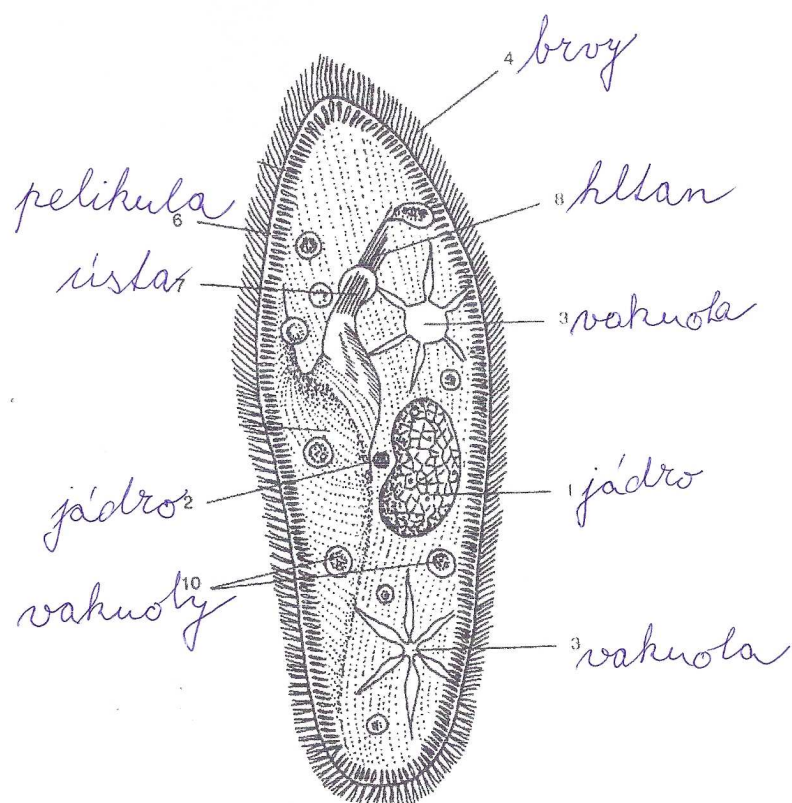 4 brvy
pelikula
6
8 hltan
ústa 7
3 vakuola
jádro 2
1 jádro
10
vakuoly
3 vakuola